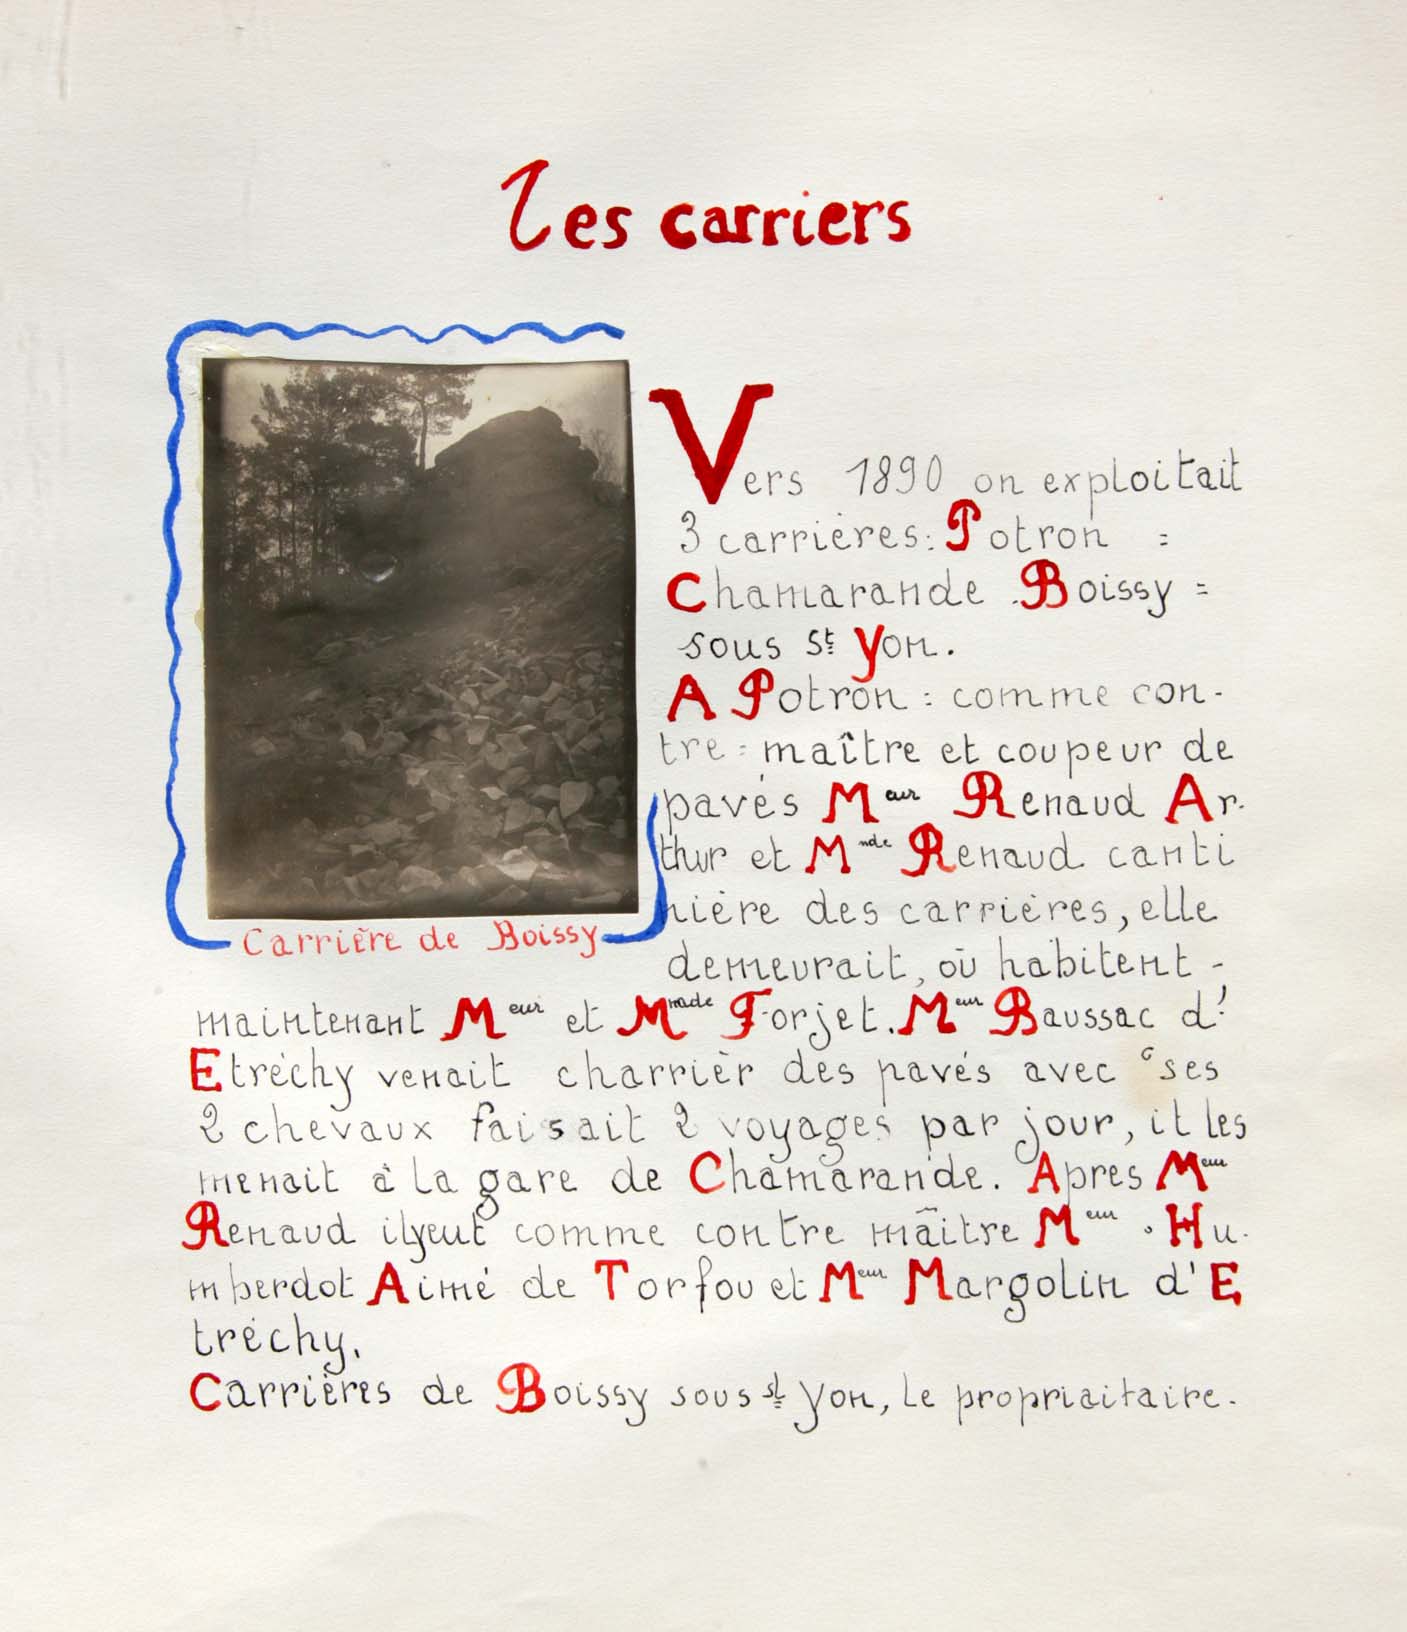 Les carriers
Vers 1890 on exploitait
3 carrières: Potron =
Chamarande . Boissy =
sous St Yon.
A Potron = comme con-
tre = maître et coupeur de
pavés Meur Renaud Ar-
thur et Mnde Renaud canti
nière des carrières, elle
demeurait, où habitent -
Carrière de Boissy
maintenant Meur et Mmade Forjet. Meur Baussac d'
Etréchy venait charrièr des pavés avec ses
2 chevaux faisait 2 voyages par jour, il les
menait à la gare de Chamarande. Apres Meur
Renaud ilyeut comme contre maître Meur . Hu-
mberdot Aimé de Torfou et Meur Margolin d'E
tréchy.
Carrières de Boissy sous st Yon, Le propriaitaire.